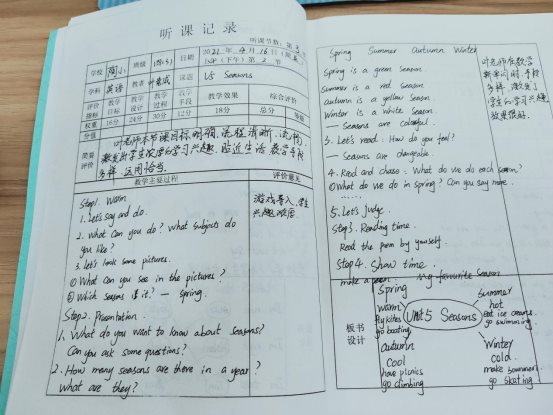 听课记录
听课节数：第3
学校 班级 四(5) 日期 2021年4月16日(周五)
(下午)第2节
学科 英语 教者 课题 U5 Seasons
评价指标 教学目标 教学设计 教学过程 教学手段 教学效果 综合评价
权重 16分 24分 30分 12分 18分 总分 等级
得分
简要评价
叶老师本节课目标明确,流程清晰、流畅,
激发出学生浓厚的学习兴趣,贴近生活,教学手段
多样,运用恰当.
教学主要过程 评价意见
Step1. Warm
1. Let's say and do.
2. What can you do? What subjects do
you like?
3. Let's look some pictures.
① What can you see in the pictures?
② Which season is it? — spring.
Step2. Presentation.
1. What do you want to know about seasons?
Can you ask some questions?
2. How many seasons are there in a year?
What are they?
游戏导入,学生
兴趣浓厚.
Spring Summer Autumn Winter
Spring is a green season.
Summer is a red season.
Autumn is a yellow season
Winter is a white season.
— Seasons are colourful.
3. Let's read. How do you feel?
— Seasons are changeable.
4. Read and choose. What do we do each season?
① What do we do in spring? Can you say more.
......
5. Let's judge.
Step3. Reading time.
Read the poem by yourself.
Step4. Show time.
make a poem. My favourite Season
叶老师在教学
新单词时,手段
多样,激发了
学生的学习兴趣,
效果很好.
板书设计
Unit 5 Seasons
Spring
warm
fly kites
go boating
Summer
hot
eat ice creams
go swimming
Autumn
cool
have picnics
go climbing
Winter
cold
make snowmen
go skating